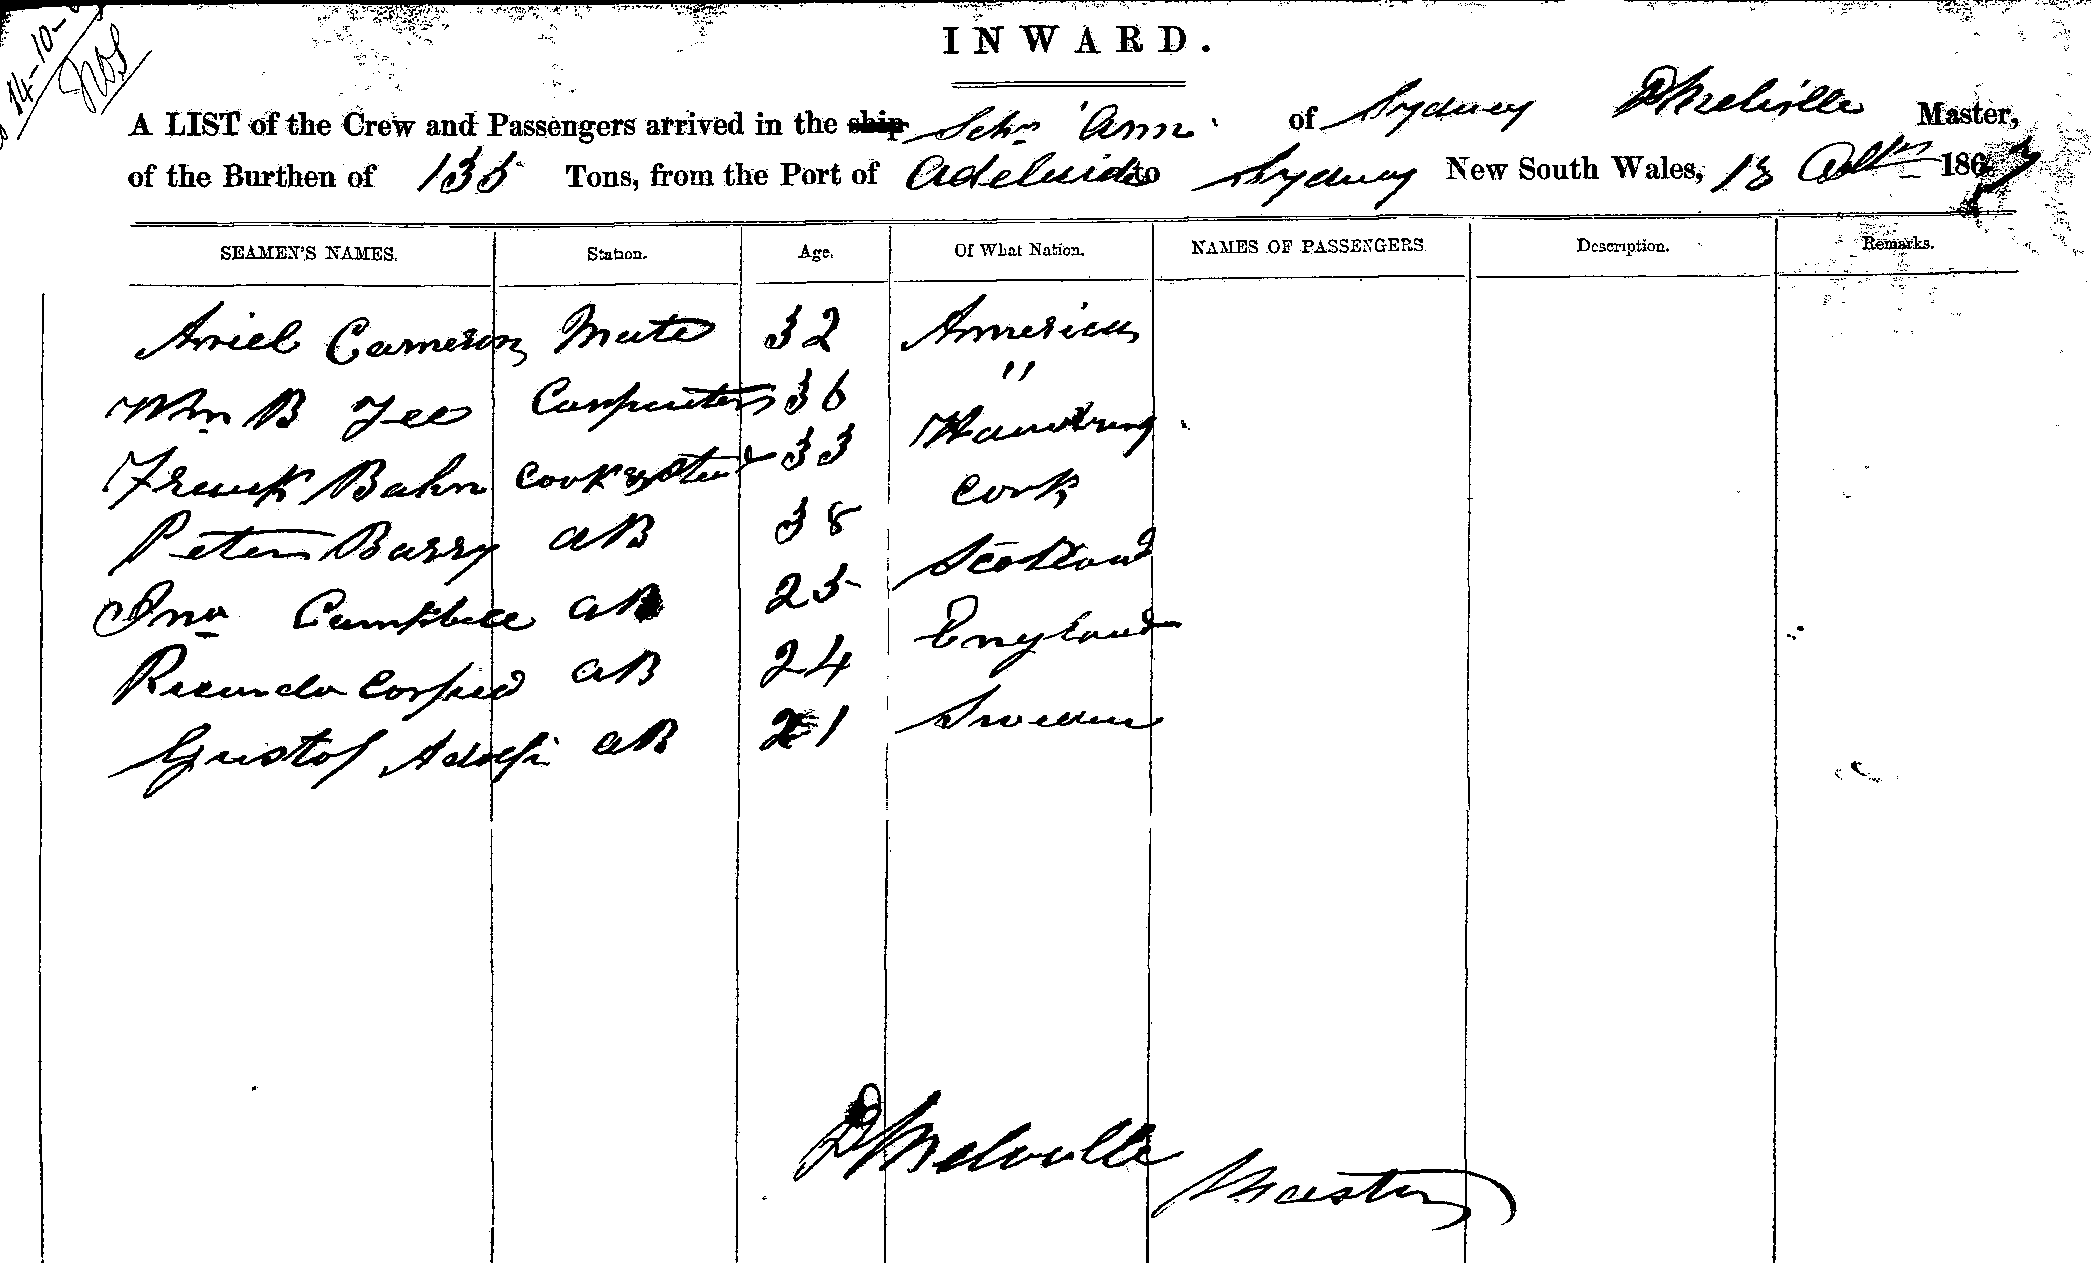 14-10-
INWARD.
A LIST of the Crew and Passengers arrived in the ship Schr Ann of Sydney D Melville Master,
of the Burthen of 135 Tons, from the Port of Adelaide to Sydney New South Wales, 13 Octr 1867
SEAMEN'S NAMES. Station. Age. Of What Nation. NAMES OF PASSENGERS Description. Remarks.
Ariel Cameron Mate 32 America
Wm B Fee Carpenter 36 "
Frank Bahn Cook & Stewd 33 Hamburg
Peter Barry AB 38 Cork
Jno Campbell AB 25 Scotland
AB 24 England
Gustof Adolfi AB 21 Sweden
D Melville Master